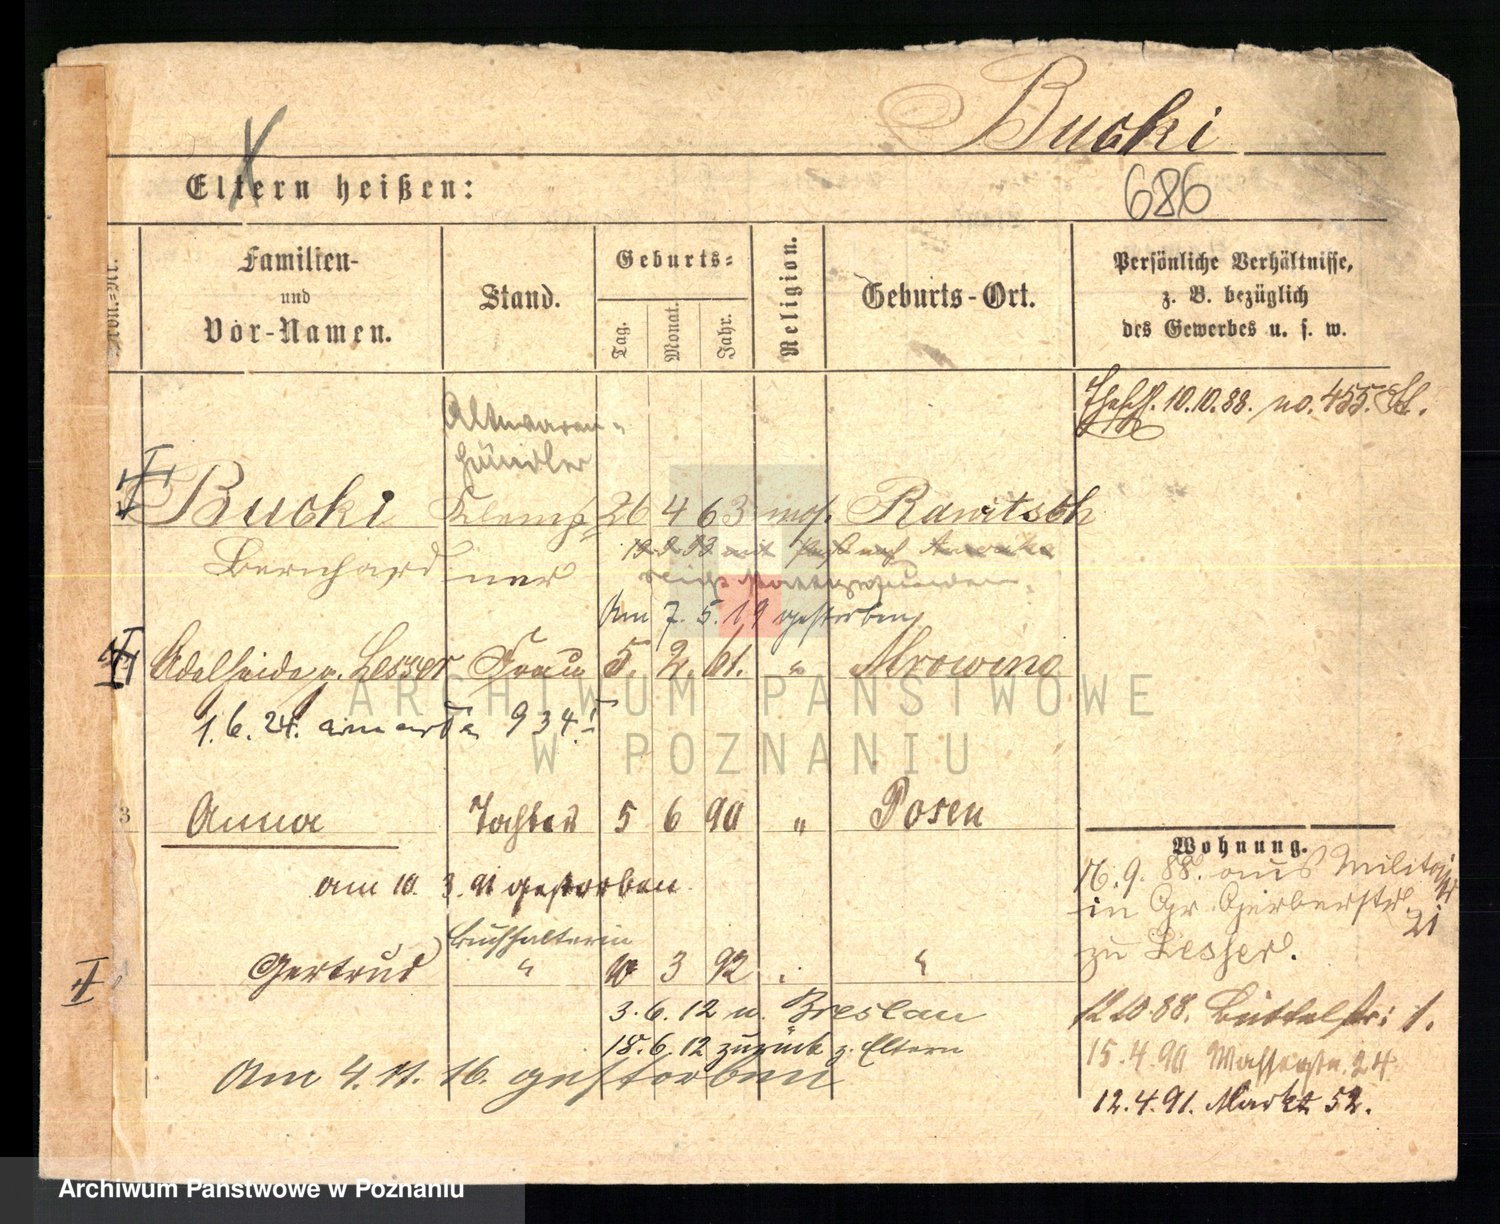 Bucki
Eltern heißen:
686
Familien-
und
Vor-Namen.
Stand.
Geburts-
Tag.
Monat.
Jahr.
Religion.
Geburts-Ort.
Persönliche Verhältnisse,
z. B. bezüglich
des Gewerbes u. s. w.
10.10.88. no. 455.
Altwaren-
händler
Bucki Klemp- 26 4 63 mos. Rawitsch
Bernhard ner
Am 7. 5. 19 gestorben
Adelheide g. Lesser Frau 5. 2. 61. " Mrowino
1. 6. 24. 934
ARCHIWUM PAŃSTWOWE
W POZNANIU
3 Anna Tochter 5 6 90 " Posen
am 10. 3. 91 gestorben.
Wohnung.
16. 9. 88. aus Militär
in Gr. Gerberstr. 21
zu Lesser.
Buchhalterin
Gertrud " 10 3 92 "
3. 6. 12 n. Breslau
18. 6. 12 zurück z. Eltern
Am 4. 11. 16. gestorben
12.10.88. Büttelstr: 1.
15. 4. 90 Wasserstr. 24.
12. 4. 91. Markt 52.
Archiwum Państwowe w Poznaniu